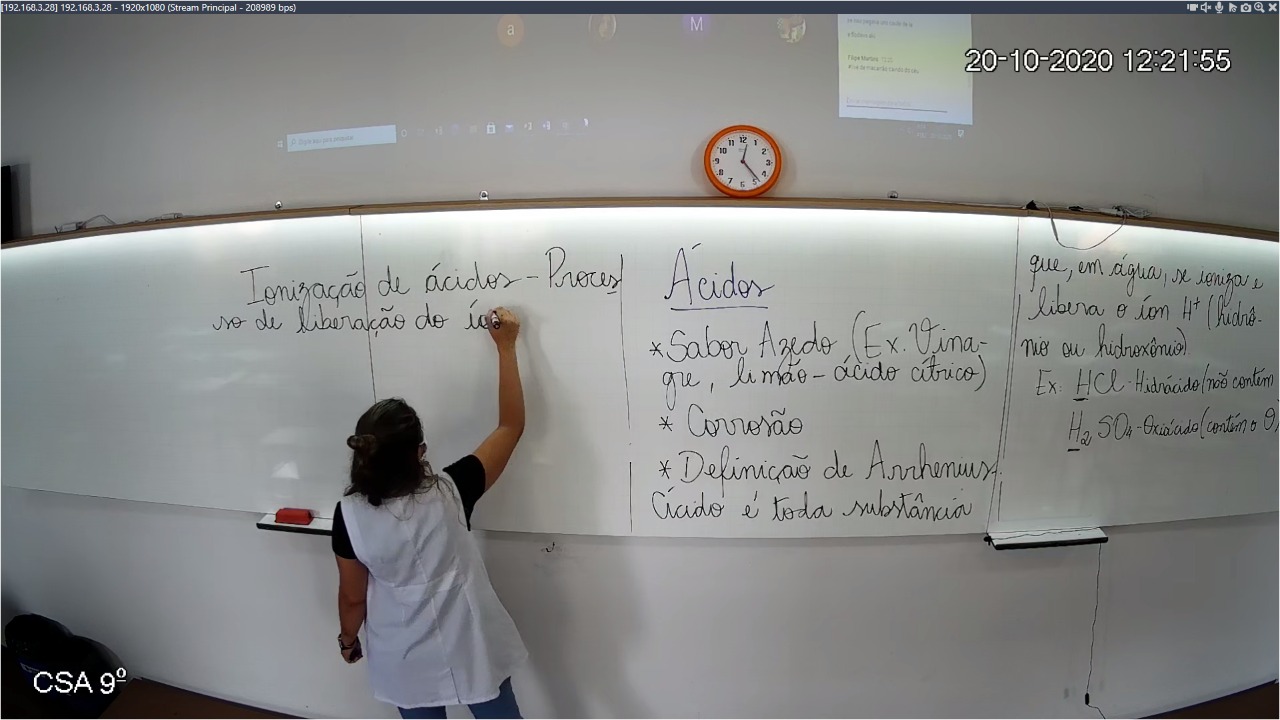 [192.168.3.28] 192.168.3.28 - 1920x1080 (Stream Principal - 208989 bps)
a
M
20-10-2020 12:21:55
12 1 2 3 4 5 6 7 8 9 10 11
Ionização de ácidos - Proces
so de liberação do ío
Ácidos
* Sabor Azedo (Ex. Vina-
gre, limão - ácido cítrico)
* Corrosão
* Definição de Arrhenius.
Ácido é toda substância
que, em água, se ioniza e
libera o íon H⁺ (hidrô-
nio ou hidroxônio)
Ex: HCl - Hidrácido (não contém
H₂SO₄ - Oxiácido (contém o O)
CSA 9º